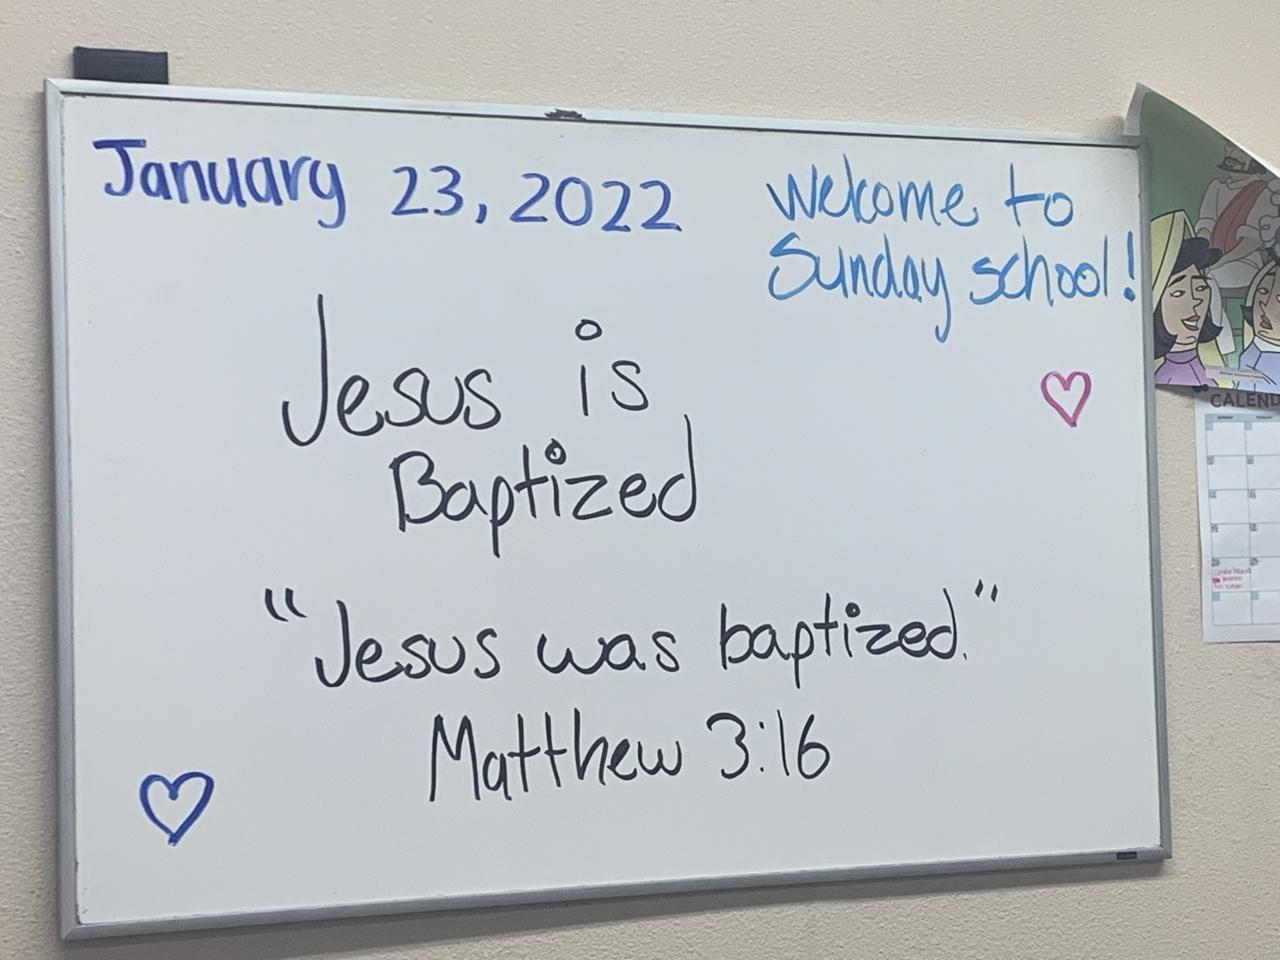 January 23, 2022
Welcome to
Sunday school!
Jesus is
Baptized
"Jesus was baptized."
Matthew 3:16
CALEND